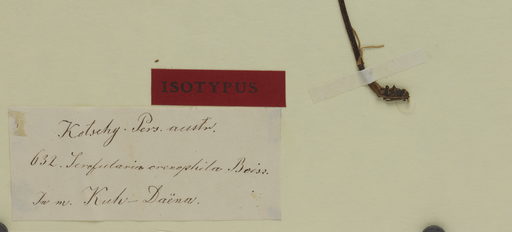 ISOTYPUS
Kotschy. Pers. austr.
632. Scrofularia crenophila Boiss.
In m. Kuh-Daëna.